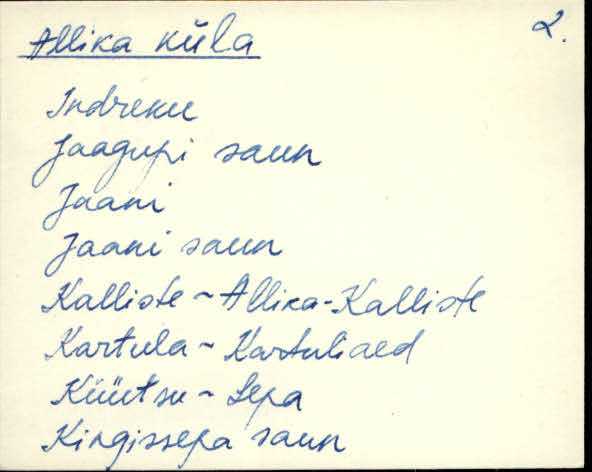 Allika küla 2.
Indreku
Jaagupi saun
Jaani
Jaani saun
Kalliste ~ Allika-Kalliste
Kartula ~ Kartuliaed
Küütsu ~ Sepa
Kingissepa saun